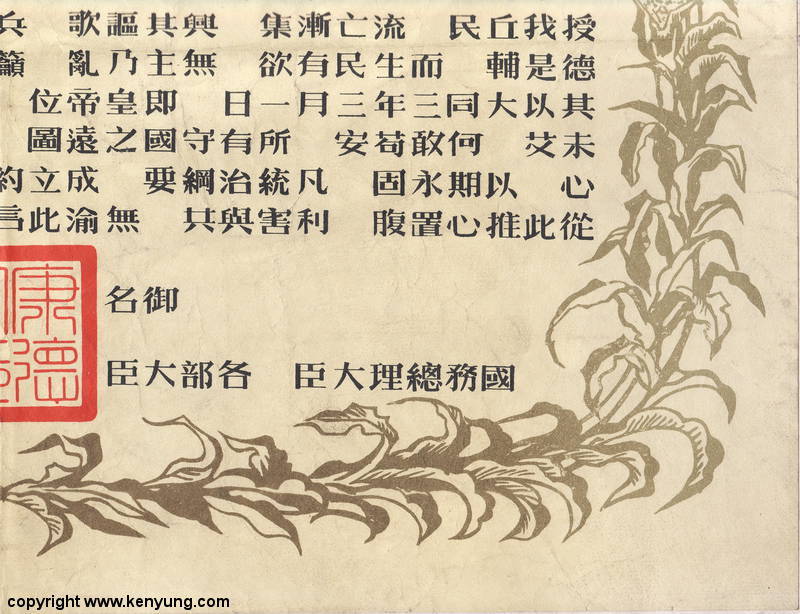 授德其未心從
我是以艾此
丘輔大以推
民同何期心
而三敢永置
流生年苟固腹
亡民三安
漸有月凡利
集欲一所統害
日有治與
興無守綱共
其主即國要
謳乃皇之無
歌亂帝遠成渝
位圖立此
兵籲約
御名
國務總理大臣 各部大臣
康德
copyright www.kenyung.com